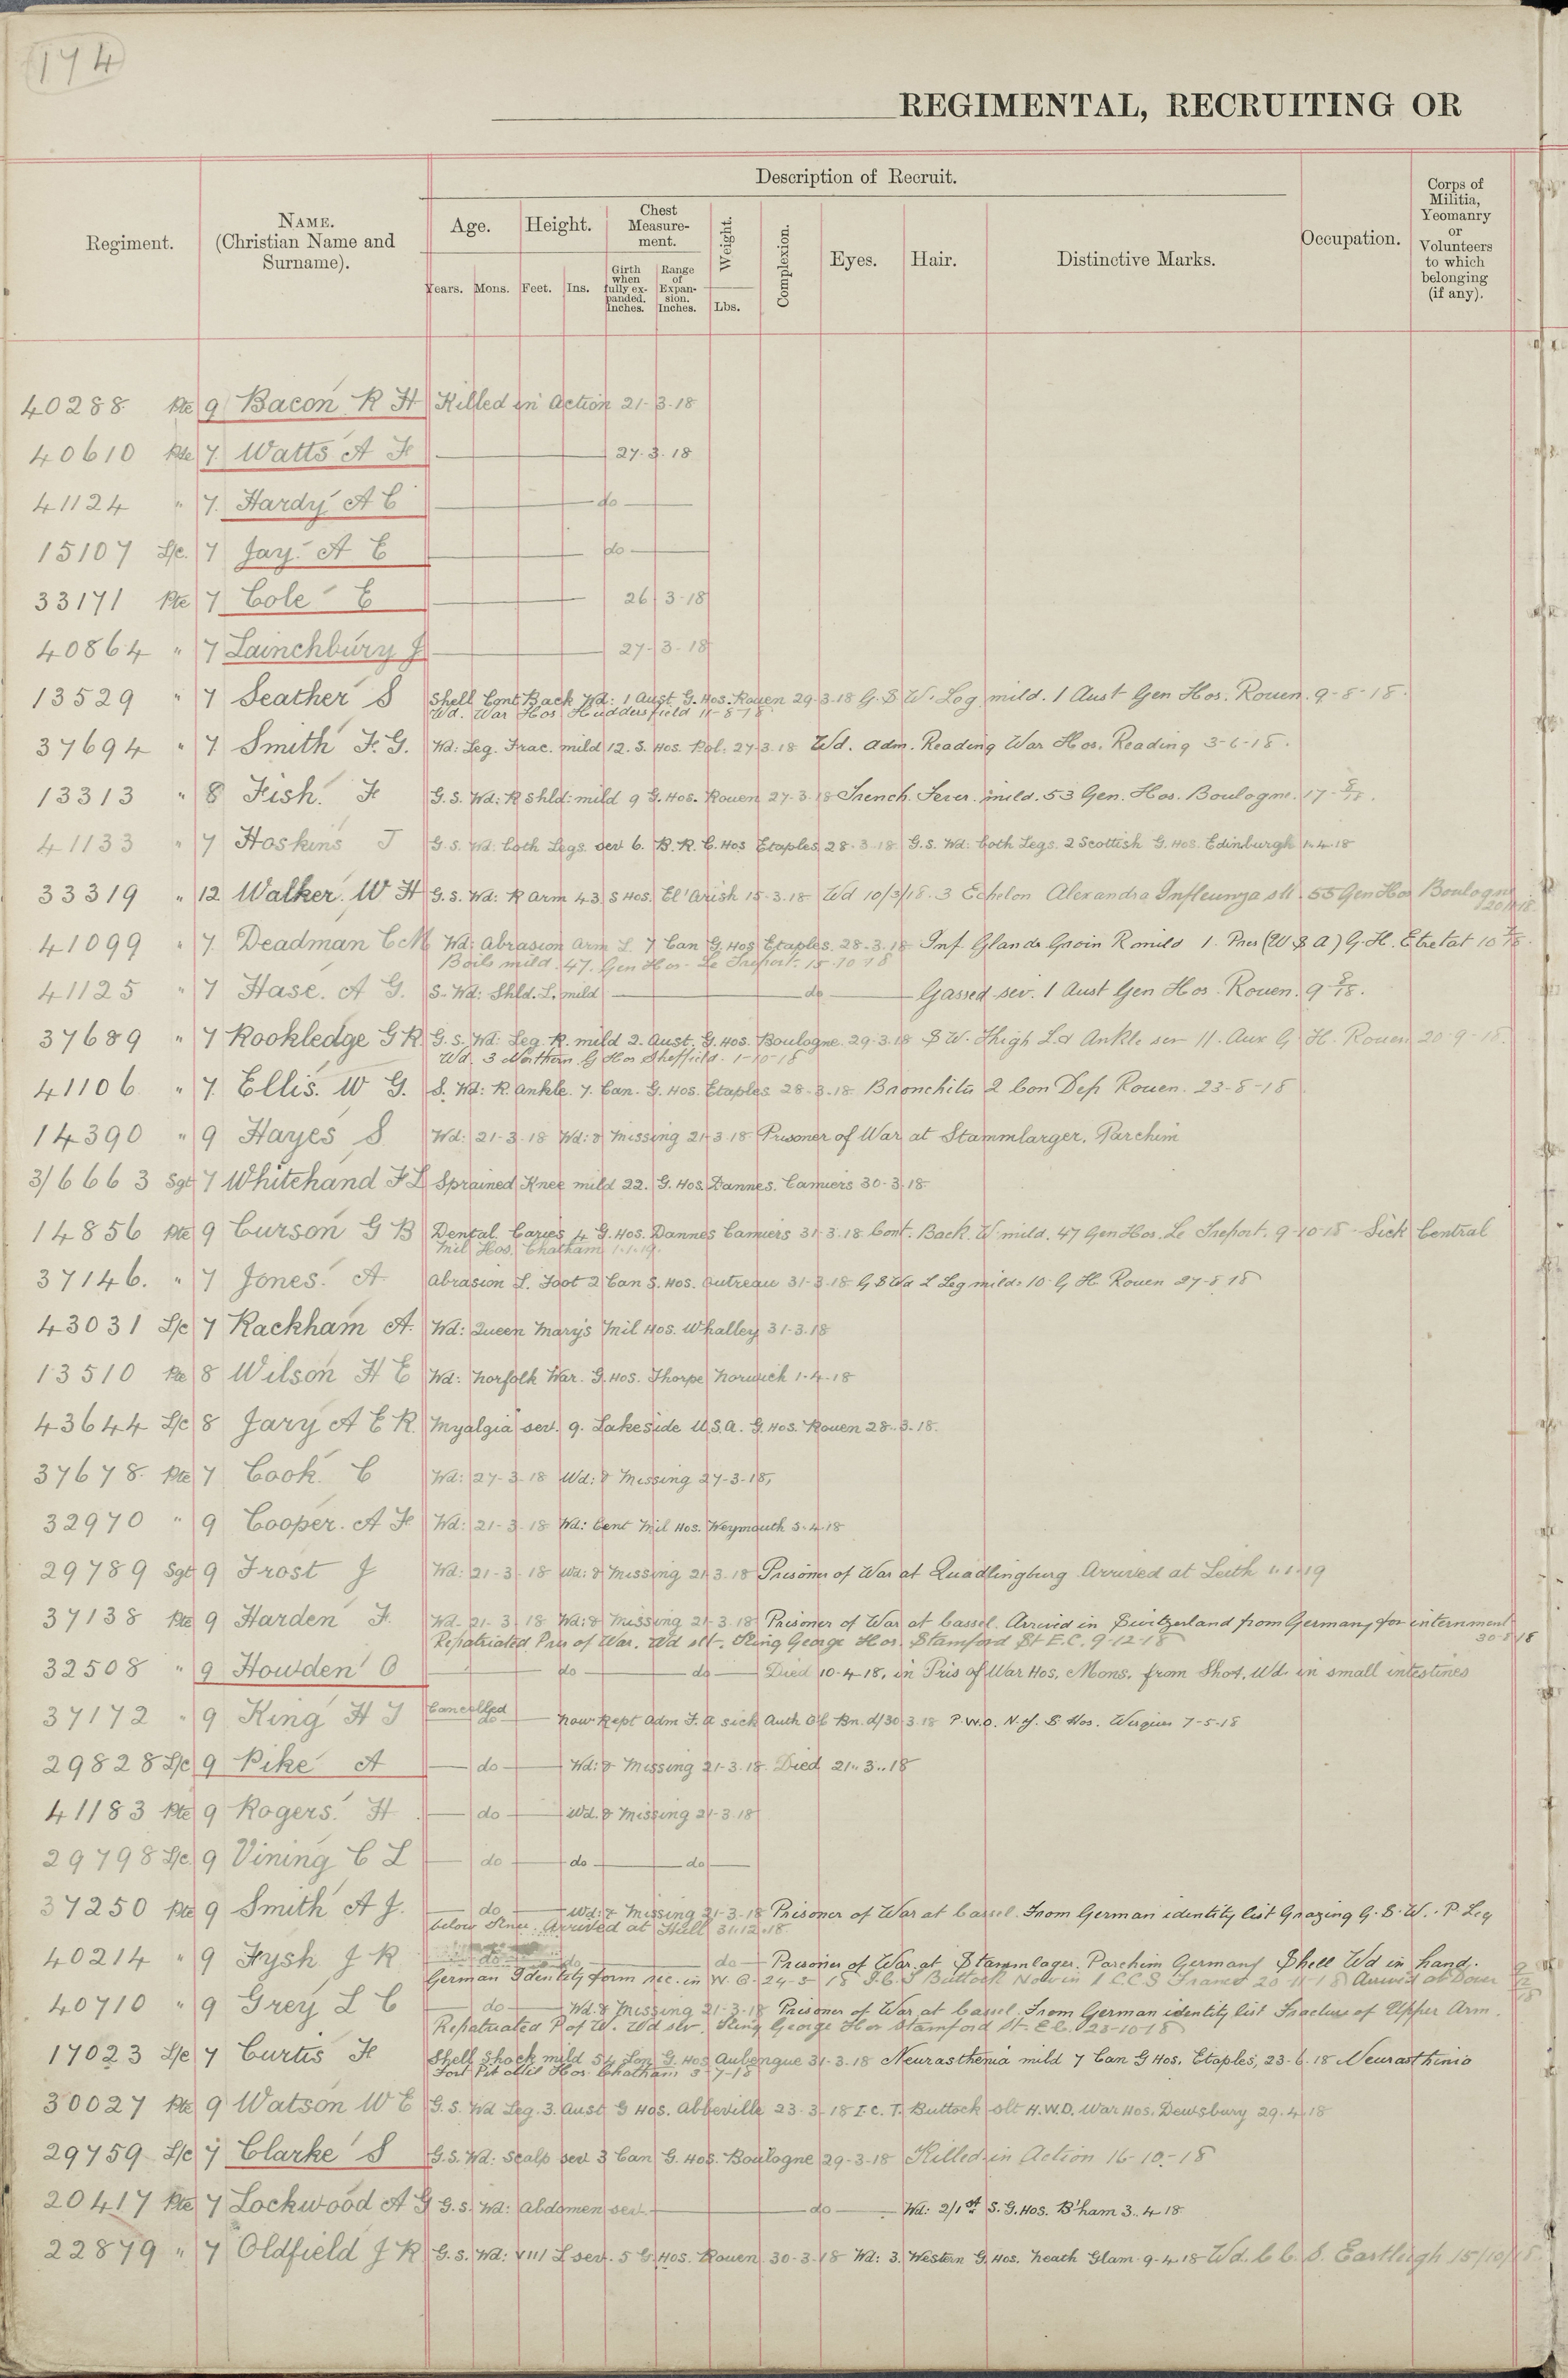 174
REGIMENTAL, RECRUITING OR
Regiment.
NAME.
(Christian Name and
Surname).
Description of Recruit.
Age.
Height.
Chest
Measure-
ment.
Weight.
Complexion.
Eyes.
Hair.
Distinctive Marks.
Occupation.
Corps of
Militia,
Yeomanry
or
Volunteers
to which
belonging
(if any).
Years.
Mons.
Feet.
Ins.
Girth
when
fully ex-
panded.
Inches.
Range
of
Expan-
sion.
Inches.
Lbs.
40288 Pte 9 Bacon R H Killed in Action 21-3-18
40610 Pte 7 Watts A F 27-3-18
41124 " 7 Hardy A C do
15107 L/c 7 Jay A E do
33171 Pte 7 Cole E 26-3-18
40864 " 7 Lainchbury J 27-3-18
13529 " 7 Seather S Shell Cont Back Wd: 1 Aust G. Hos. Rouen 29-3-18 G.S W. Leg mild. 1 Aust Gen Hos. Rouen. 9-8-18.
Wd. War Hos Huddersfield 11-8-18
37694 " 7 Smith F. G. Wd: Leg. Frac. mild 12. S. Hos. Pol: 27-3-18 Wd. adm. Reading War Hos. Reading 3-6-18.
13313 " 8 Fish. F G.S. Wd: R Shld: mild 9 G. Hos. Rouen 27-3-18 Trench Fever. mild. 53 Gen. Hos. Boulogne. 17-8/18.
41133 " 7 Hoskins J G.S. Wd: both Legs sev 6. B.R.C. Hos Etaples 28-3-18 G.S. Wd: both Legs. 2 Scottish G. Hos. Edinburgh 1-4-18
33319 " 12 Walker. W H G.S. Wd: R Arm 43 S Hos. El'Arish 15-3-18 Wd 10/3/18. 3 Echelon Alexandra Infleunza slt. 55 Gen Hos Boulogne
41099 " 7 Deadman C M Wd: abrasion arm L 7 Can G. Hos Etaples. 28-3-18 Inf Glands Groin R mild 1. Pres (U S A) G. H. Etretat 10
Boils mild. 47. Gen Hos. Le Treport. 15-10-18
41125 " 7 Hase. A G. S. Wd: Shld. L. mild do Gassed sev. 1 Aust Gen Hos. Rouen. 9 8/18.
37689 " 7 Rookledge G R G.S. Wd: Leg R. mild 2. Aust. G. Hos. Boulogne. 29-3-18 S W. Thigh L & Ankle sev 11. Aux G H. Rouen 20-9-18.
Wd. 3 Northern G Hos Sheffield. 1-10-18
41106 " 7 Ellis. W G. S. Wd: R. Ankle. 7. Can. G. Hos. Etaples 28-3-18 Bronchitis 2 Con Dep Rouen. 23-8-18
14390 " 9 Hayes S. Wd: 21-3-18 Wd: & Missing 21-3-18 Prisoner of War at Stammlarger. Parchim
3/6663 Sgt 7 Whitehand F L Sprained Knee mild 22. G. Hos. Dannes. Camiers 30-3-18.
14856 Pte 9 Curson G B Dental Caries 4 G. Hos. Dannes Camiers 31-3-18 Cont. Back. W mild. 47 Gen Hos. Le Treport. 9-10-18. Sick Central
Mil Hos. Chatham 1.1.19.
37146. " 7 Jones. A Abrasion L. Foot 2 Can S. Hos. Outreau 31-3-18 G S Wd L Leg mild. 10 G H. Rouen 27-8-18
43031 L/c 7 Rackham A. Wd: Queen Mary's Mil Hos. Whalley 31-3-18
13510 Pte 8 Wilson H E Wd: Norfolk War. G. Hos. Thorpe Norwich 1-4-18
43644 L/c 8 Jary A E R. Myalgia sev. 9. Lakeside U.S.A. G. Hos. Rouen 28-3-18.
37678. Pte 7 Cook C Wd: 27-3-18 Wd: & Missing 27-3-18,
32970 " 9 Cooper. A F Wd: 21-3-18 Wd: Cent Mil Hos. Weymouth 5-4-18
29789 Sgt 9 Frost J Wd: 21-3-18 Wd: & Missing 21-3-18 Prisoner of War at Quadlingburg Arrived at Leith 1.1.19
37138 Pte 9 Harden F. Wd. 21-3-18 Wd: & Missing 21-3-18 Prisoner of War at Cassel. Arrived in Switzerland from Germany for internment
Repatriated Pris of War. Wd slt. King George Hos. Stamford St E.C. 9-12-18
32508 " 9 Howden O do do Died 10-4-18, in Pris of War Hos. Mons. from Shot. Wd. in small intestines
37172 " 9 King H J Cancelled do now Rept Adm F. A sick Auth OC Bn. d/30-3-18 P.W.O. N. of. S. Hos. Wisques 7-5-18
29828 L/c 9 Pike A do Wd: & Missing 21-3-18. Died 21..3..18
41183 Pte 9 Rogers. H do Wd. & Missing 21-3-18
29798 L/c 9 Vining C L do do do
37250 Pte 9 Smith A J. do Wd: & Missing 21-3-18 Prisoner of War at Cassel. From German identity list Grazing G.S.W. R Leg
below Knee. Arrived at Hull 31.12.18
40214 " 9 Fysh J R do do do Prisoner of War at Stammlager. Parchim Germany Shell Wd in hand.
German Identity form rec. in W. O. 24-5-18 I.C.T Buttock Now in 1 CCS France 20-11-18 Arrived at Dover
40710 " 9 Grey L C do Wd. & Missing 21-3-18 Prisoner of War at Cassel. From German identity list Fracture of Upper Arm.
Repatriated P of W. Wd sev. King George Hos Stamford St. E C. 23-10-18
17023 L/c 7 Curtis F Shell Shock mild 54 Lon G. Hos Aubengue 31-3-18 Neurasthenia mild 7 Can G Hos. Etaples, 23-6-18 Neurasthinia
Fort Pit Mil Hos. Chatham 3-7-18
30027 Pte 9 Watson W E G.S. Wd Leg. 3. Aust G Hos. Abbeville 23-3-18 I.C.T. Buttock slt H.W.D. War Hos. Dewsbury 29-4-18
29759 L/c 7 Clarke S G.S. Wd: Scalp sev 3 Can G. Hos. Boulogne 29-3-18 Killed in Action 16-10-18
20417 Pte 7 Lockwood A G G.S. Wd: Abdomen sev do Wd: 2/1st S. G. Hos. B'ham 3..4-18.
22879 " 7 Oldfield J R G.S. Wd: VIII L sev. 5 G. Hos. Rouen 30-3-18 Wd: 3. Western G. Hos. Neath Glam 9-4-18 Wd. C.C.S. Eastleigh 15/10/18.